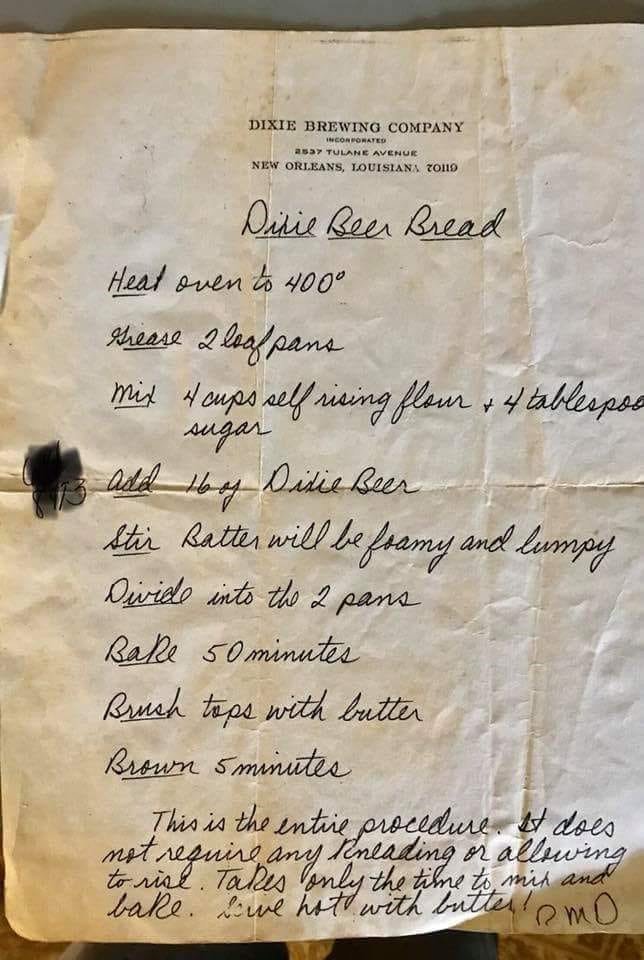 DIXIE BREWING COMPANY
INCORPORATED
2537 TULANE AVENUE
NEW ORLEANS, LOUISIANA 70119
Dixie Beer Bread
Heat oven to 400°
Grease 2 loaf pans
Mix 4 cups self rising flour + 4 tablespoo
sugar
Add 16 oz Dixie Beer
Stir Batter will be foamy and lumpy
Divide into the 2 pans
Bake 50 minutes
Brush tops with butter
Brown 5 minutes
This is the entire procedure. It does
not require any kneading or allowing
to rise. Takes only the time to mix and
bake. Serve hot with butter!